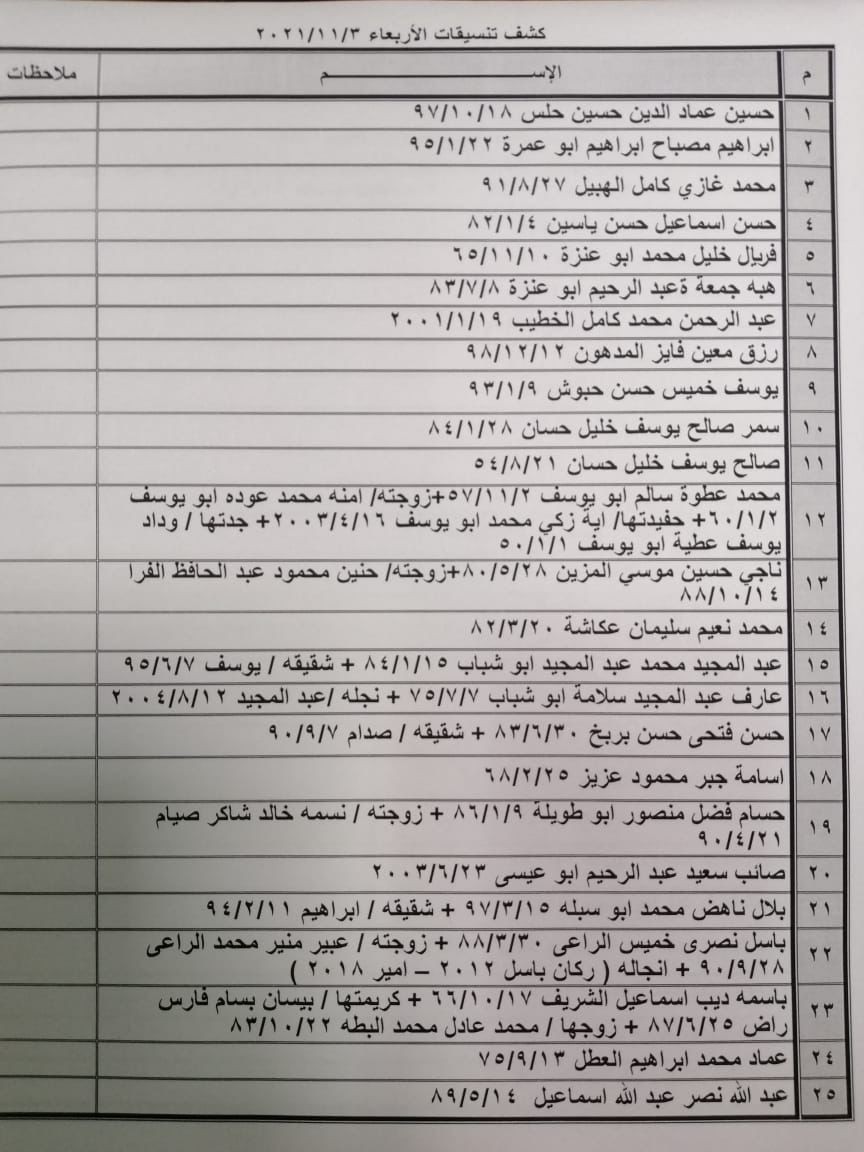 كشف تنسيقات الأربعاء ٢٠٢١/١١/٣
م الإســـــــــــــم ملاحظات
١ حسين عماد الدين حسين حلس ٩٧/١٠/١٨
٢ ابراهيم مصباح ابراهيم ابو عمرة ٩٥/١/٢٢
٣ محمد غازي كامل الهبيل ٩١/٨/٢٧
٤ حسن اسماعيل حسن ياسين ٨٢/١/٤
٥ فريال خليل محمد ابو عنزة ٦٥/١١/١٠
٦ هبه جمعة ةعبد الرحيم ابو عنزة ٨٣/٧/٨
٧ عبد الرحمن محمد كامل الخطيب ٢٠٠١/١/١٩
٨ رزق معين فايز المدهون ٩٨/١٢/١٢
٩ يوسف خميس حسن حبوش ٩٣/١/٩
١٠ سمر صالح يوسف خليل حسان ٨٤/١/٢٨
١١ صالح يوسف خليل حسان ٥٤/٨/٢١
١٢ محمد عطوة سالم ابو يوسف ٥٧/١١/٢+زوجته/ امنه محمد عوده ابو يوسف
٦٠/١/٢+ حفيدتها/ اية زكي محمد ابو يوسف ٢٠٠٣/٤/١٦+ جدتها / وداد
يوسف عطية ابو يوسف ٥٠/١/١
١٣ ناجي حسين موسي المزين ٨٠/٥/٢٨+زوجته/ حنين محمود عبد الحافظ الفرا
٨٨/١٠/١٤
١٤ محمد نعيم سليمان عكاشة ٨٢/٣/٢٠
١٥ عبد المجيد محمد عبد المجيد ابو شباب ٨٤/١/١٥ + شقيقه / يوسف ٩٥/٦/٧
١٦ عارف عبد المجيد سلامة ابو شباب ٧٥/٧/٧ + نجله /عبد المجيد ٢٠٠٤/٨/١٢
١٧ حسن فتحى حسن بربخ ٨٣/٦/٣٠ + شقيقه / صدام ٩٠/٩/٧
١٨ اسامة جبر محمود عزيز ٦٨/٢/٢٥
١٩ حسام فضل منصور ابو طويلة ٨٦/١/٩ + زوجته / نسمه خالد شاكر صيام
٩٠/٤/٢١
٢٠ صائب سعيد عبد الرحيم ابو عيسى ٢٠٠٣/٦/٢٣
٢١ بلال ناهض محمد ابو سبله ٩٧/٣/١٥ + شقيقه / ابراهيم ٩٤/٢/١١
٢٢ باسل نصرى خميس الراعى ٨٨/٣/٣٠ + زوجته / عبير منير محمد الراعى
٩٠/٩/٢٨ + انجاله ( ركان باسل ٢٠١٢ – امير ٢٠١٨ )
٢٣ باسمه ديب اسماعيل الشريف ٦٦/١٠/١٧ + كريمتها / بيسان بسام فارس
راض ٨٧/٦/٢٥ + زوجها / محمد عادل محمد البطه ٨٣/١٠/٢٢
٢٤ عماد محمد ابراهيم العطل ٧٥/٩/١٣
٢٥ عبد الله نصر عبد الله اسماعيل ٨٩/٥/١٤